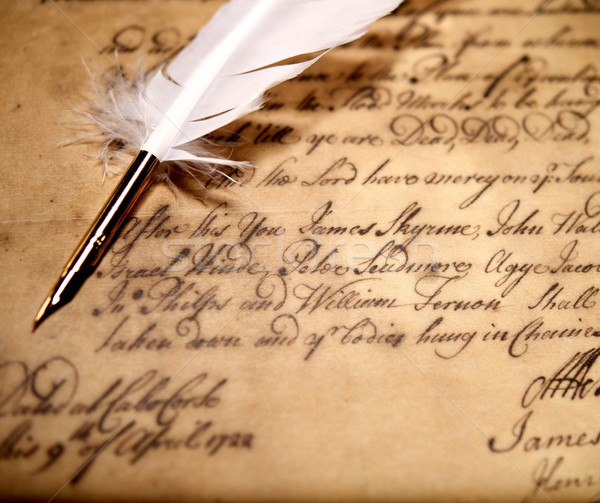 from
to the Place of
the Flood Marks to be hang
'till ye are Dead, Dead, Dead,
And the Lord have mercy on yr Sou
After this You James Skyrme, John Wal
Israel Hinde, Peter Scudmore, Agge Jacob
Jno Philps and William Fernon Shall
taken down and yr bodies hung in Chaines
Dated at Cabo Corso
this 9th of April 1722
James
Henr